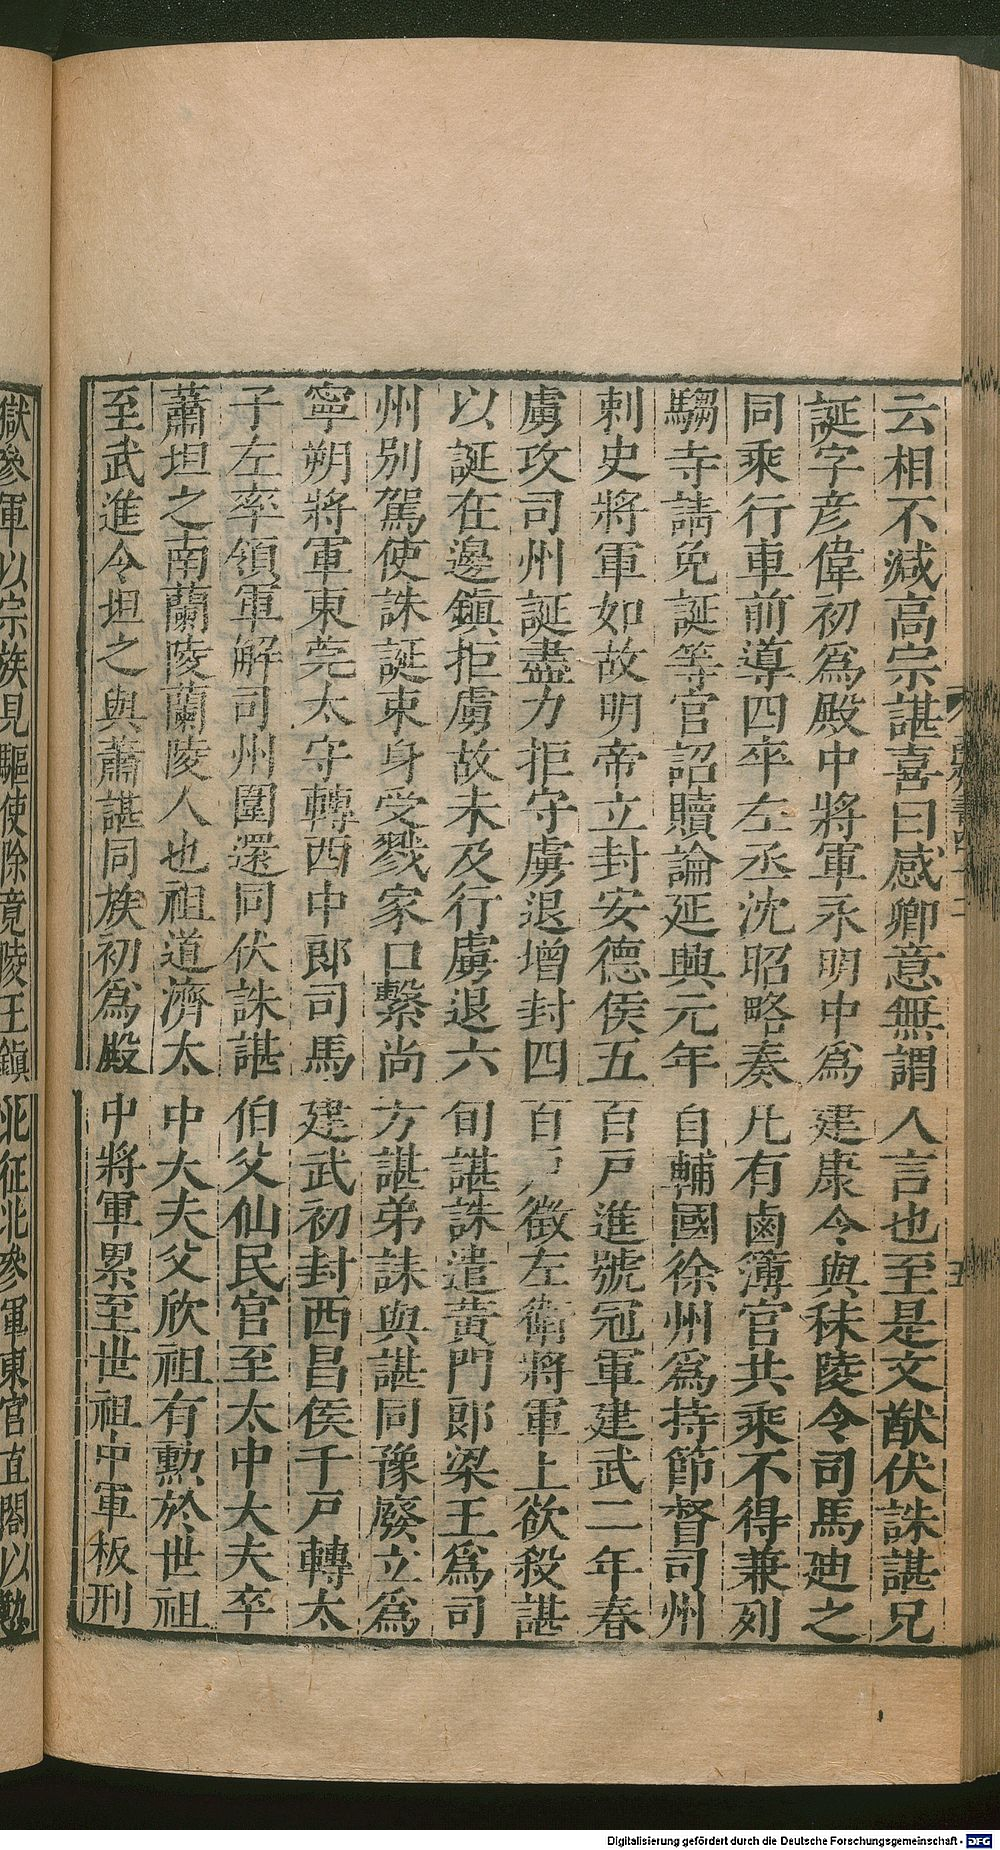 云相不減高宗諶喜曰感卿意無謂人言也至是文猷伏誅諶兄
誕字彦偉初爲殿中將軍永明中爲建康令與秣陵令司馬迪之
同乘行車前導四卒左丞沈昭略奏凡有鹵簿官共乘不得兼列
騶寺請免誕等官詔贖論延興元年自輔國徐州爲持節督司州
刺史將軍如故明帝立封安德侯五百戸進號冠軍建武二年春
虜攻司州誕盡力拒守虜退增封四百戸徵左衛將軍上欲殺諶
以誕在邊鎮拒虜故未及行虜退六旬諶誅遣黃門郎梁王爲司
州別駕使誅誕束身受戮家口繫尚方諶弟誄與諶同豫廢立爲
寧朔將軍東莞太守轉西中郎司馬建武初封西昌侯千戸轉太
子左率領軍解司州圍還同伏誅諶伯父仙民官至太中大夫卒
蕭坦之南蘭陵蘭陵人也祖道濟太中大夫父欣祖有勲於世祖
至武進令坦之與蕭諶同族初爲殿中將軍累至世祖中軍板刑
獄參軍以宗族見驅使除竟陵王鎮北征北參軍東宮直閤以勤
Digitalisierung gefördert durch die Deutsche Forschungsgemeinschaft - DFG